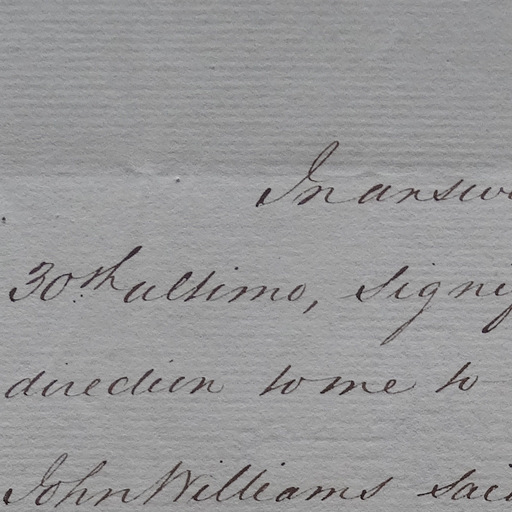 In answ
30th ultimo, signif
direction to me to
John Williams said